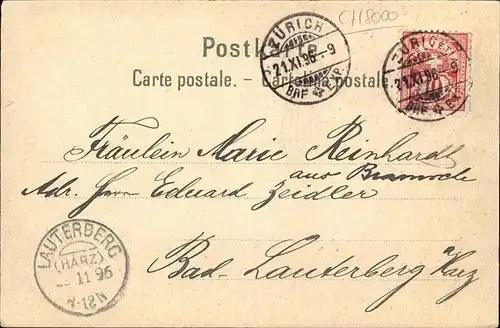 CH18000
Postkarte.
Carte postale. - Cartolina postale.
ZÜRICH
21.XI.96.-9
BRF. EXP.
ZÜRICH
21.XI.96.-9
BRF. EXP.
10
Fräulein Marie Reinhardt
aus
Adr. Herrn Eduard Zeidler
Bad-Lauterberg a/Harz
LAUTERBERG
(HARZ)
11 96
7-12N